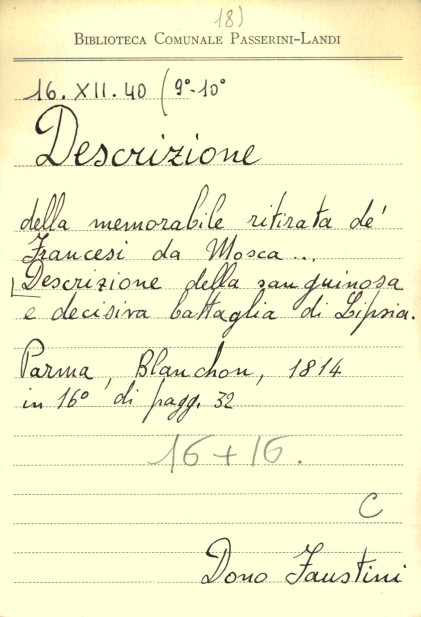 18)
BIBLIOTECA COMUNALE PASSERINI-LANDI
16. XII. 40 (9°-10°
Descrizione
della memorabile ritirata de'
Francesi da Mosca...
[Descrizione della sanguinosa
e decisiva battaglia di Lipsia.
Parma, Blanchon, 1814
in 16° di pagg. 32
16 + 16.
C
Dono Faustini